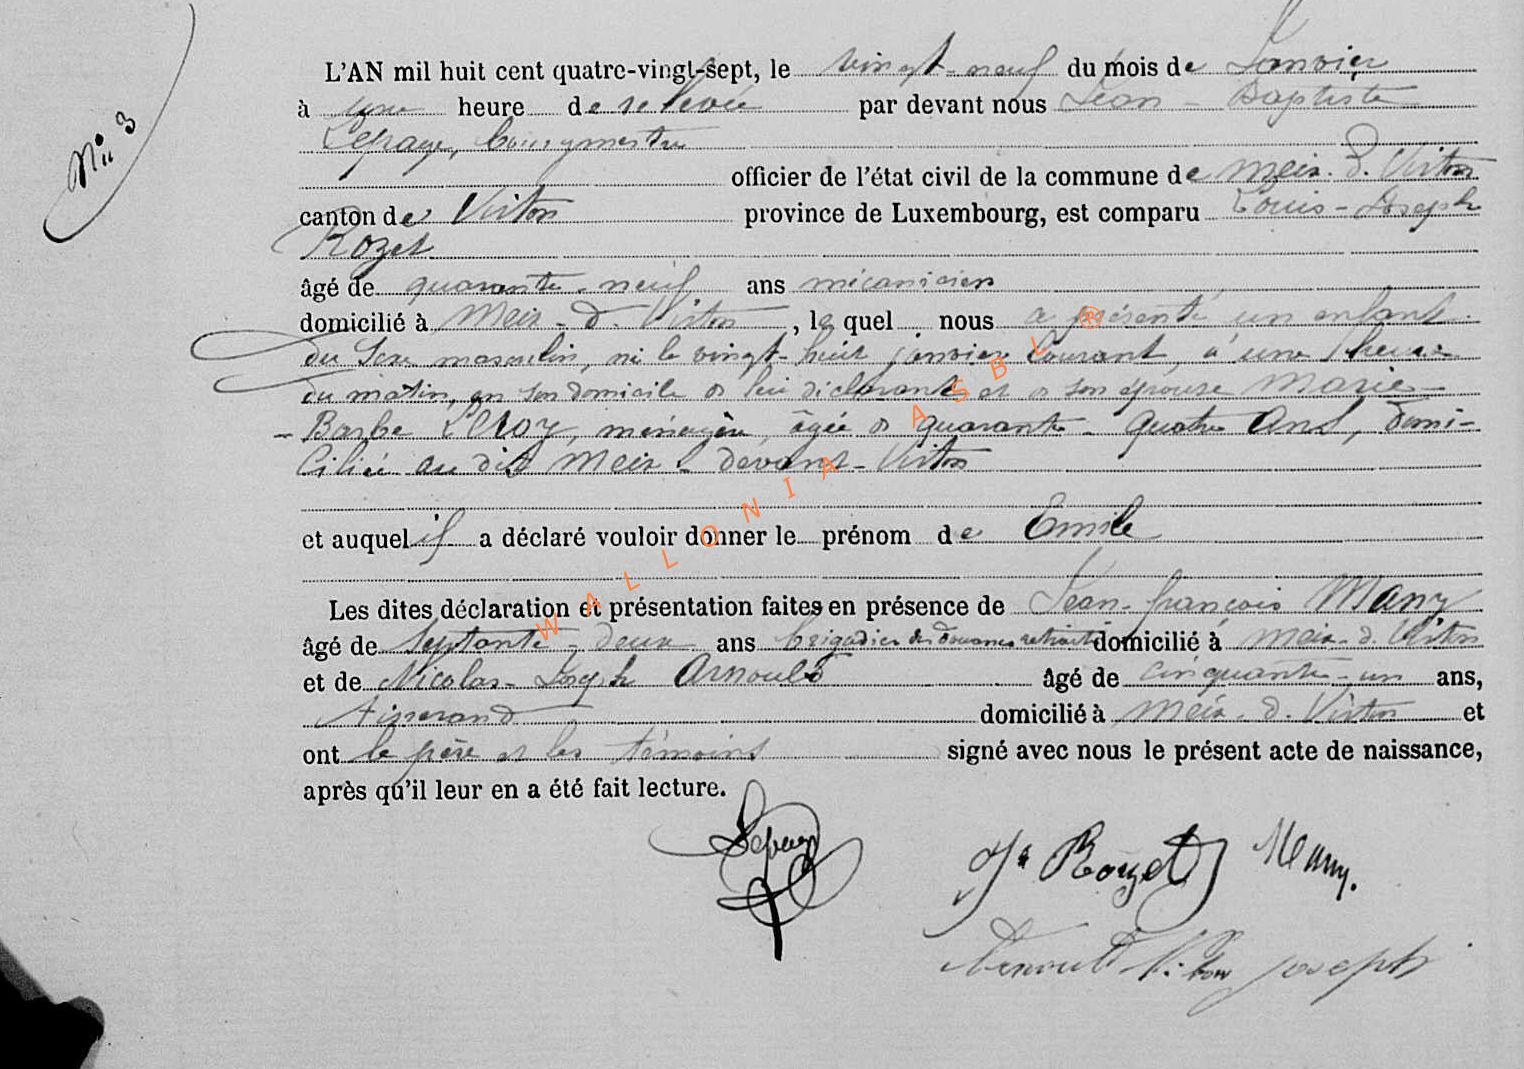 N° 3
L'AN mil huit cent quatre-vingt-sept, le vingt-neuf du mois de Janvier
à une heure de relevée par devant nous Jean-Baptiste
Lepage, bourgmestre
officier de l'état civil de la commune de Meix-d.-Virton
canton de Virton province de Luxembourg, est comparu Louis-Joseph
Rozet
âgé de quarante-neuf ans mécanicien
domicilié à Meix-d.-Virton, lequel nous a présenté un enfant
du sexe masculin, né le vingt-huit janvier courant, à une heure
du matin, en son domicile de lui déclarant et de son épouse Marie-
Barbe Leroy, ménagère, âgée de quarante-quatre ans, domi-
ciliée au dit Meix-devant-Virton
et auquel il a déclaré vouloir donner le prénom de Emile
Les dites déclaration et présentation faites en présence de Jean-François Many
âgé de septante-deux ans brigadier des douanes retraité domicilié à Meix-d.-Virton
et de Nicolas-Joseph Arnould âgé de cinquante-un ans,
tisserand domicilié à Meix-d.-Virton et
ont le père et les témoins signé avec nous le présent acte de naissance,
après qu'il leur en a été fait lecture.
Lepage Rozet Many.
Arnould Joseph
WALLONIA ASBL ®